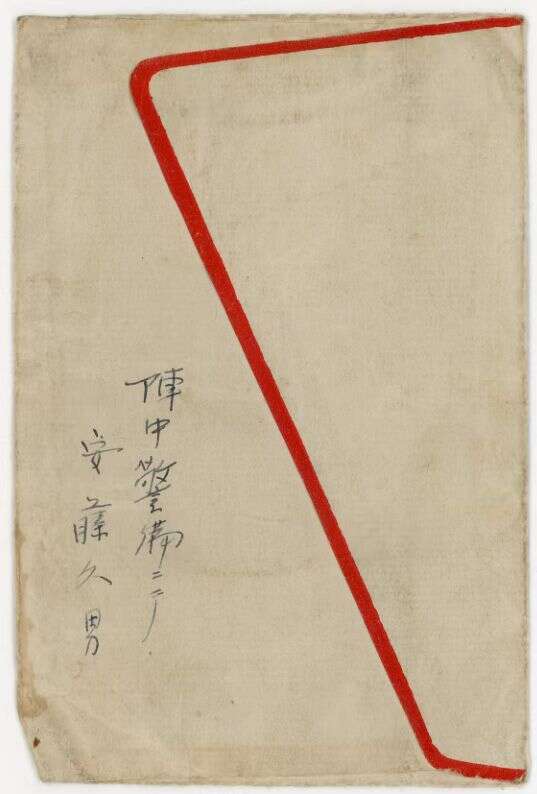 陣中警備ニテ
安藤久男